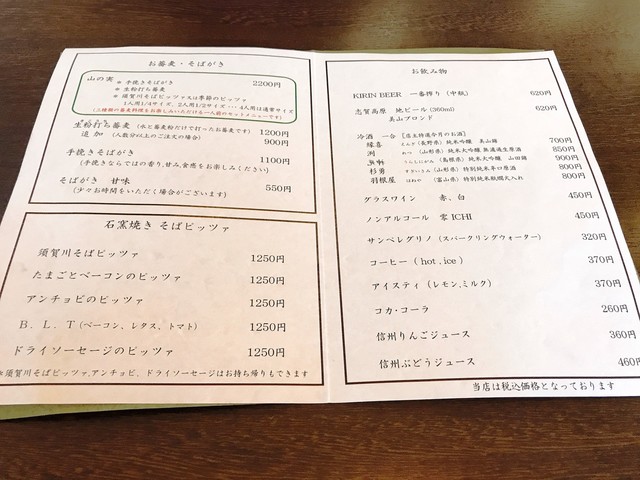 お蕎麦・そばがき
山の実 ※ 手挽きそばがき 2200円
※ 生粉打ち蕎麦
※ 須賀川そばピッツァは季節のピッツァ
1人用1/4サイズ、2人用1/2サイズ・・・4人用は通常サイズ
(三種類の蕎麦料理をお楽しみいただける一人前のセットメニューです)
生粉打ち蕎麦 (水と蕎麦粉だけで打ったお蕎麦です) 1200円
追加 (人数分以上のご注文の場合) 900円
手挽きそばがき 1100円
(手挽きならではの香り,甘み,食感をお楽しみください)
そばがき 甘味 550円
(少々お時間をいただく場合がございます)
石窯焼き そばピッツァ
須賀川そばピッツァ 1250円
たまごとベーコンのピッツァ 1250円
アンチョビのピッツァ 1250円
B.L.T(ベーコン、レタス、トマト) 1250円
ドライソーセージのピッツァ 1250円
※須賀川そばピッツァ,アンチョビ、ドライソーセージはお持ち帰りもできます
お飲み物
KIRIN BEER 一番搾り (中瓶) 620円
志賀高原 地ビール(360ml) 620円
美山ブロンド
冷酒 一合 [店主特選今月のお酒]
縁喜 えんぎ(長野県) 純米吟醸 美山錦 700円
洌 れつ (山形県) 純米大吟醸 無濾過生原酒 850円
(島根県) 純米大吟醸 山田錦 900円
杉勇 すぎいさみ(山形県) 特別純米辛口原酒 800円
羽根屋 はねや (富山県) 特別純米瓶燗火入れ 800円
グラスワイン 赤、白 450円
ノンアルコール 零ICHI 450円
サンペレグリノ (スパークリングウォーター) 320円
コーヒー ( hot , ice ) 370円
アイスティ (レモン,ミルク) 370円
コカ・コーラ 260円
信州りんごジュース 360円
信州ぶどうジュース 460円
当店は税込価格となっております